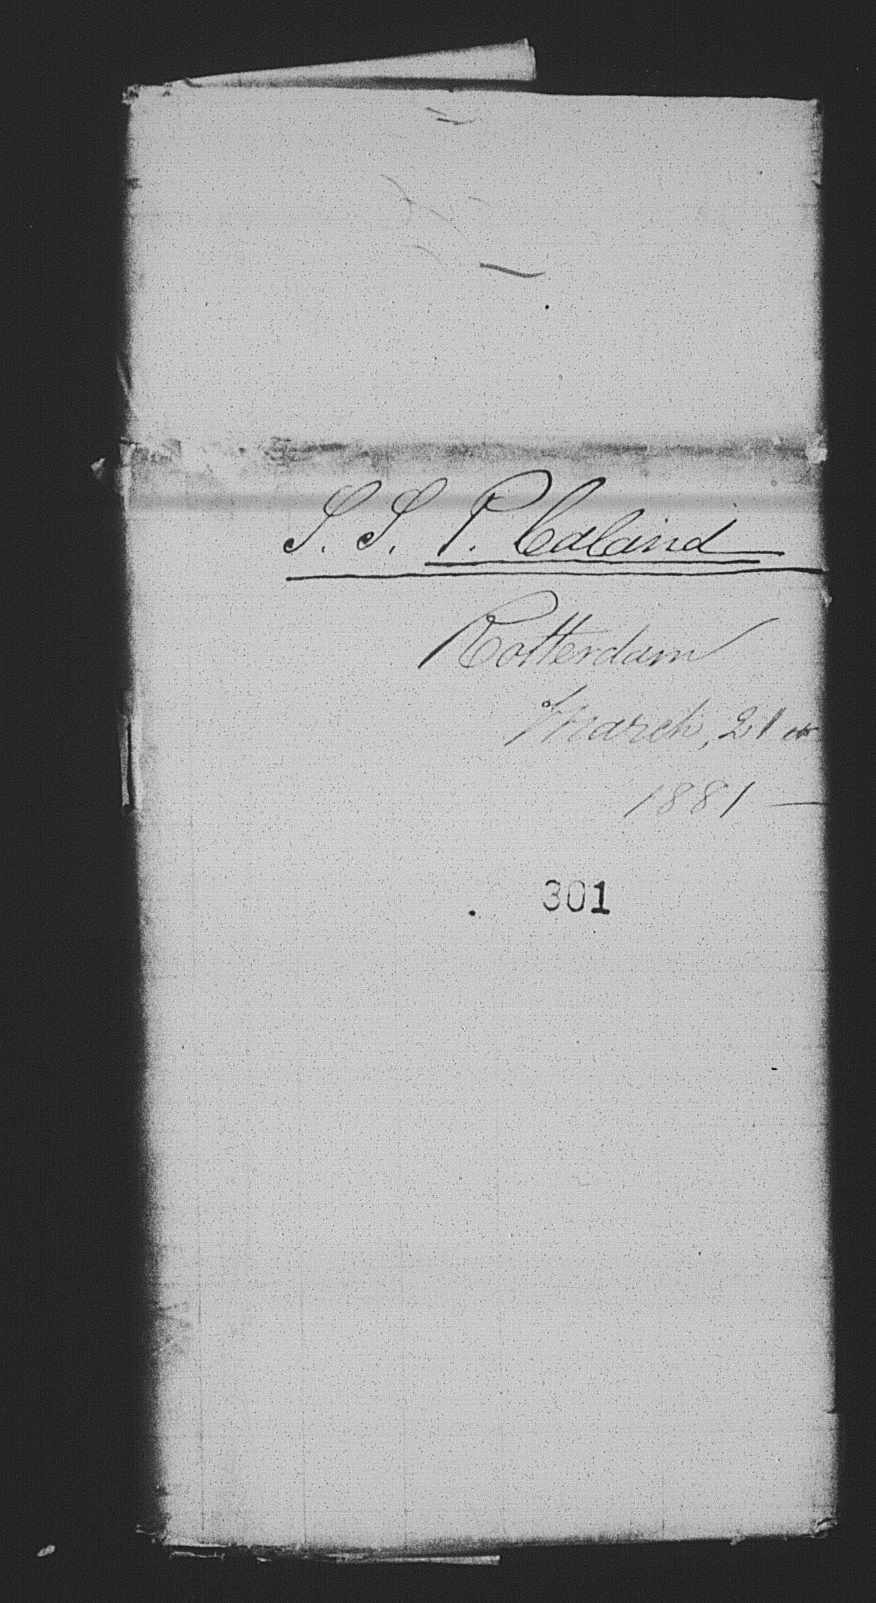 S. S. P. Caland
Rotterdam
March, 21
1881 —
301